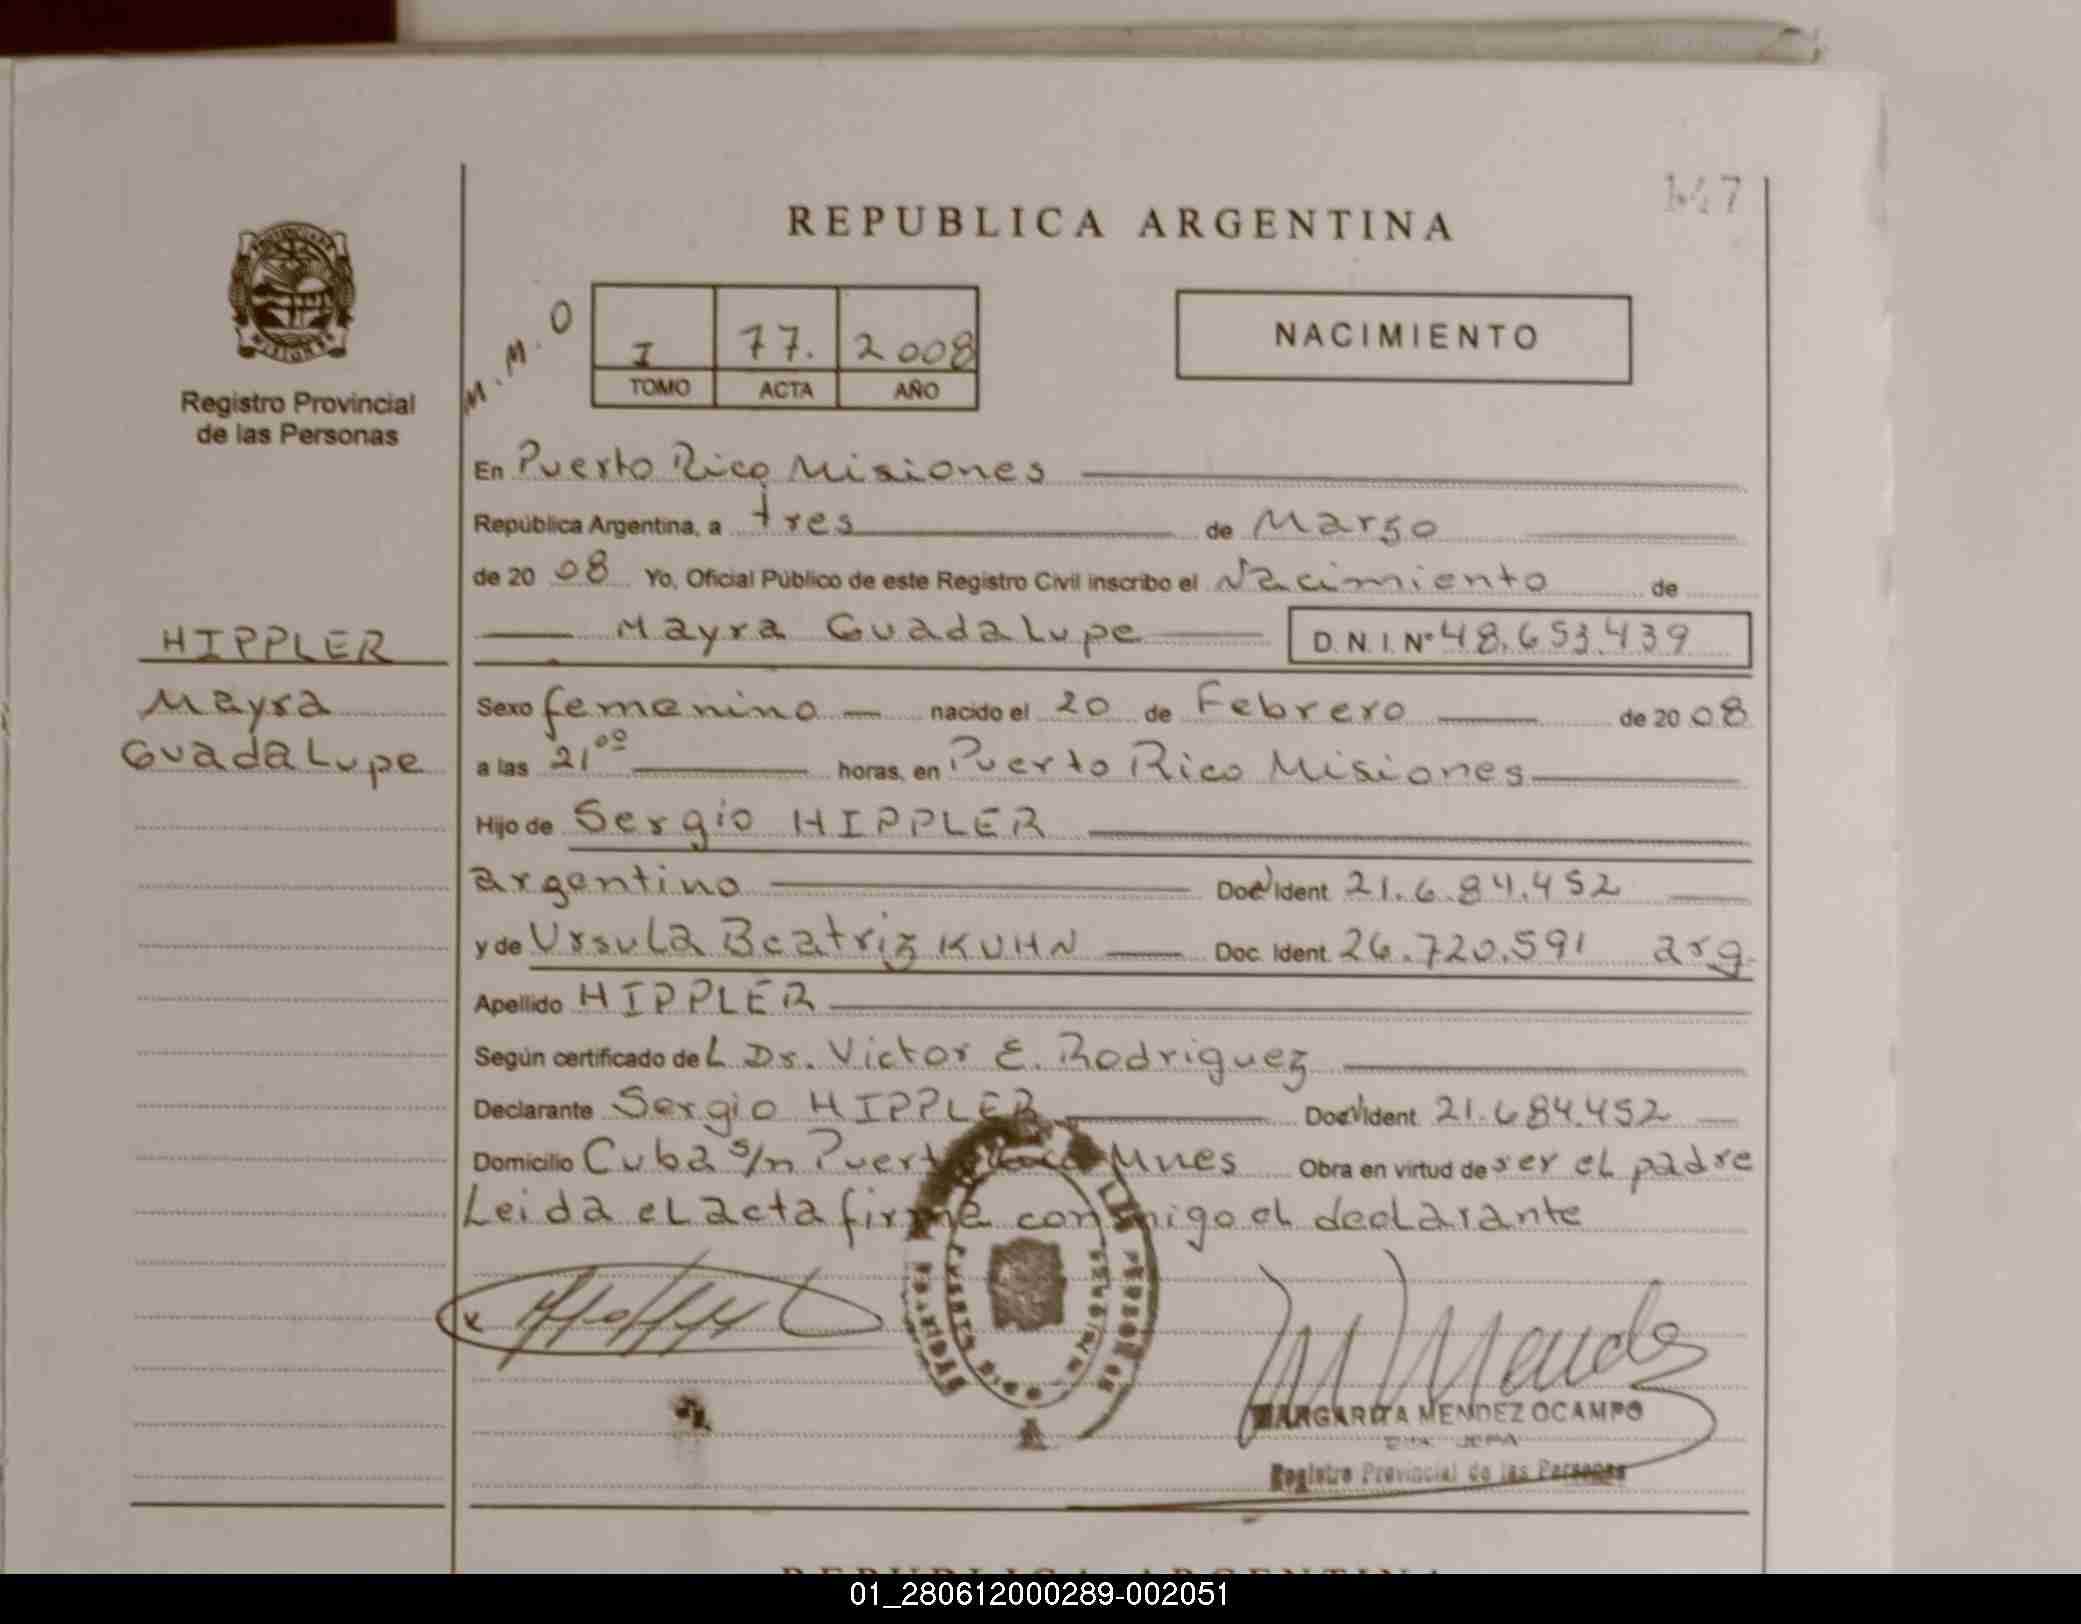 REPUBLICA ARGENTINA
Registro Provincial
de las Personas
M.M.O
I 77. 2008
TOMO ACTA AÑO
NACIMIENTO
En Puerto Rico Misiones
República Argentina, a tres de Marzo
de 20 08 Yo, Oficial Público de este Registro Civil inscribo el Nacimiento de
Mayra Guadalupe D.N.I. Nº 48.653.439
HIPPLER
Mayra
Guadalupe
Sexo femenino nacido el 20 de Febrero de 20 08
a las 21⁰⁰ horas, en Puerto Rico Misiones
Hijo de Sergio HIPPLER
argentino Doc. Ident. 21.684.452
y de Ursula Beatriz KUHN Doc. Ident. 26.720.591 arg.
Apellido HIPPLER
Según certificado de L Dr. Victor E. Rodriguez
Declarante Sergio HIPPLER Doc. Ident. 21.684.452
Domicilio Cuba s/n Puerto Rico Mnes Obra en virtud de ser el padre
Leida el acta firma conmigo el declarante
MARGARITA MENDEZ OCAMPO
Registro Provincial de las Personas
REPUBLICA ARGENTINA
01_280612000289-002051